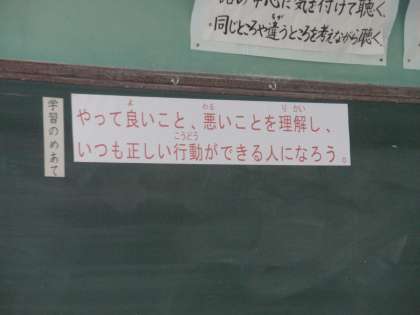 に気を付けて聴く。
・同じところや違うところを考えながら聴く。
学習のめあて
やって良いこと、悪いことを理解し、
いつも正しい行動ができる人になろう。